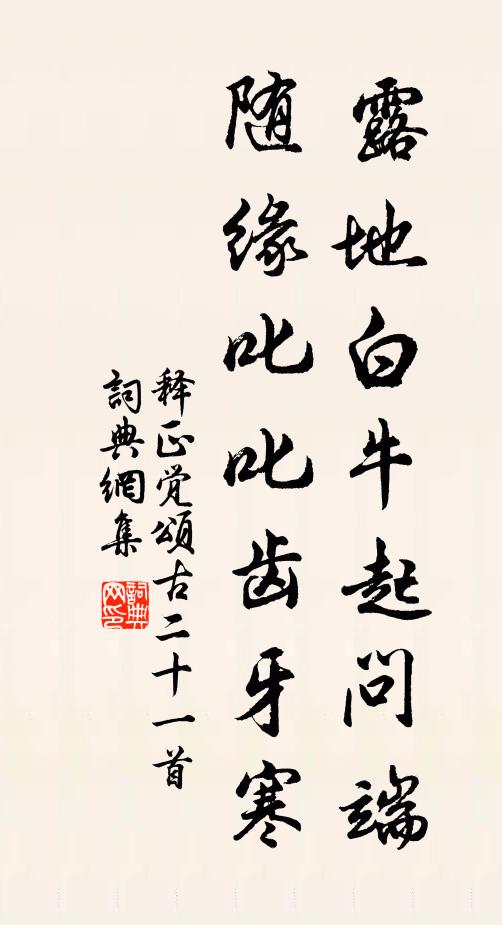 露地白牛起问端
随缘叱叱齿牙寒
释正觉颂古二十一首
詞典網集
詞典网印